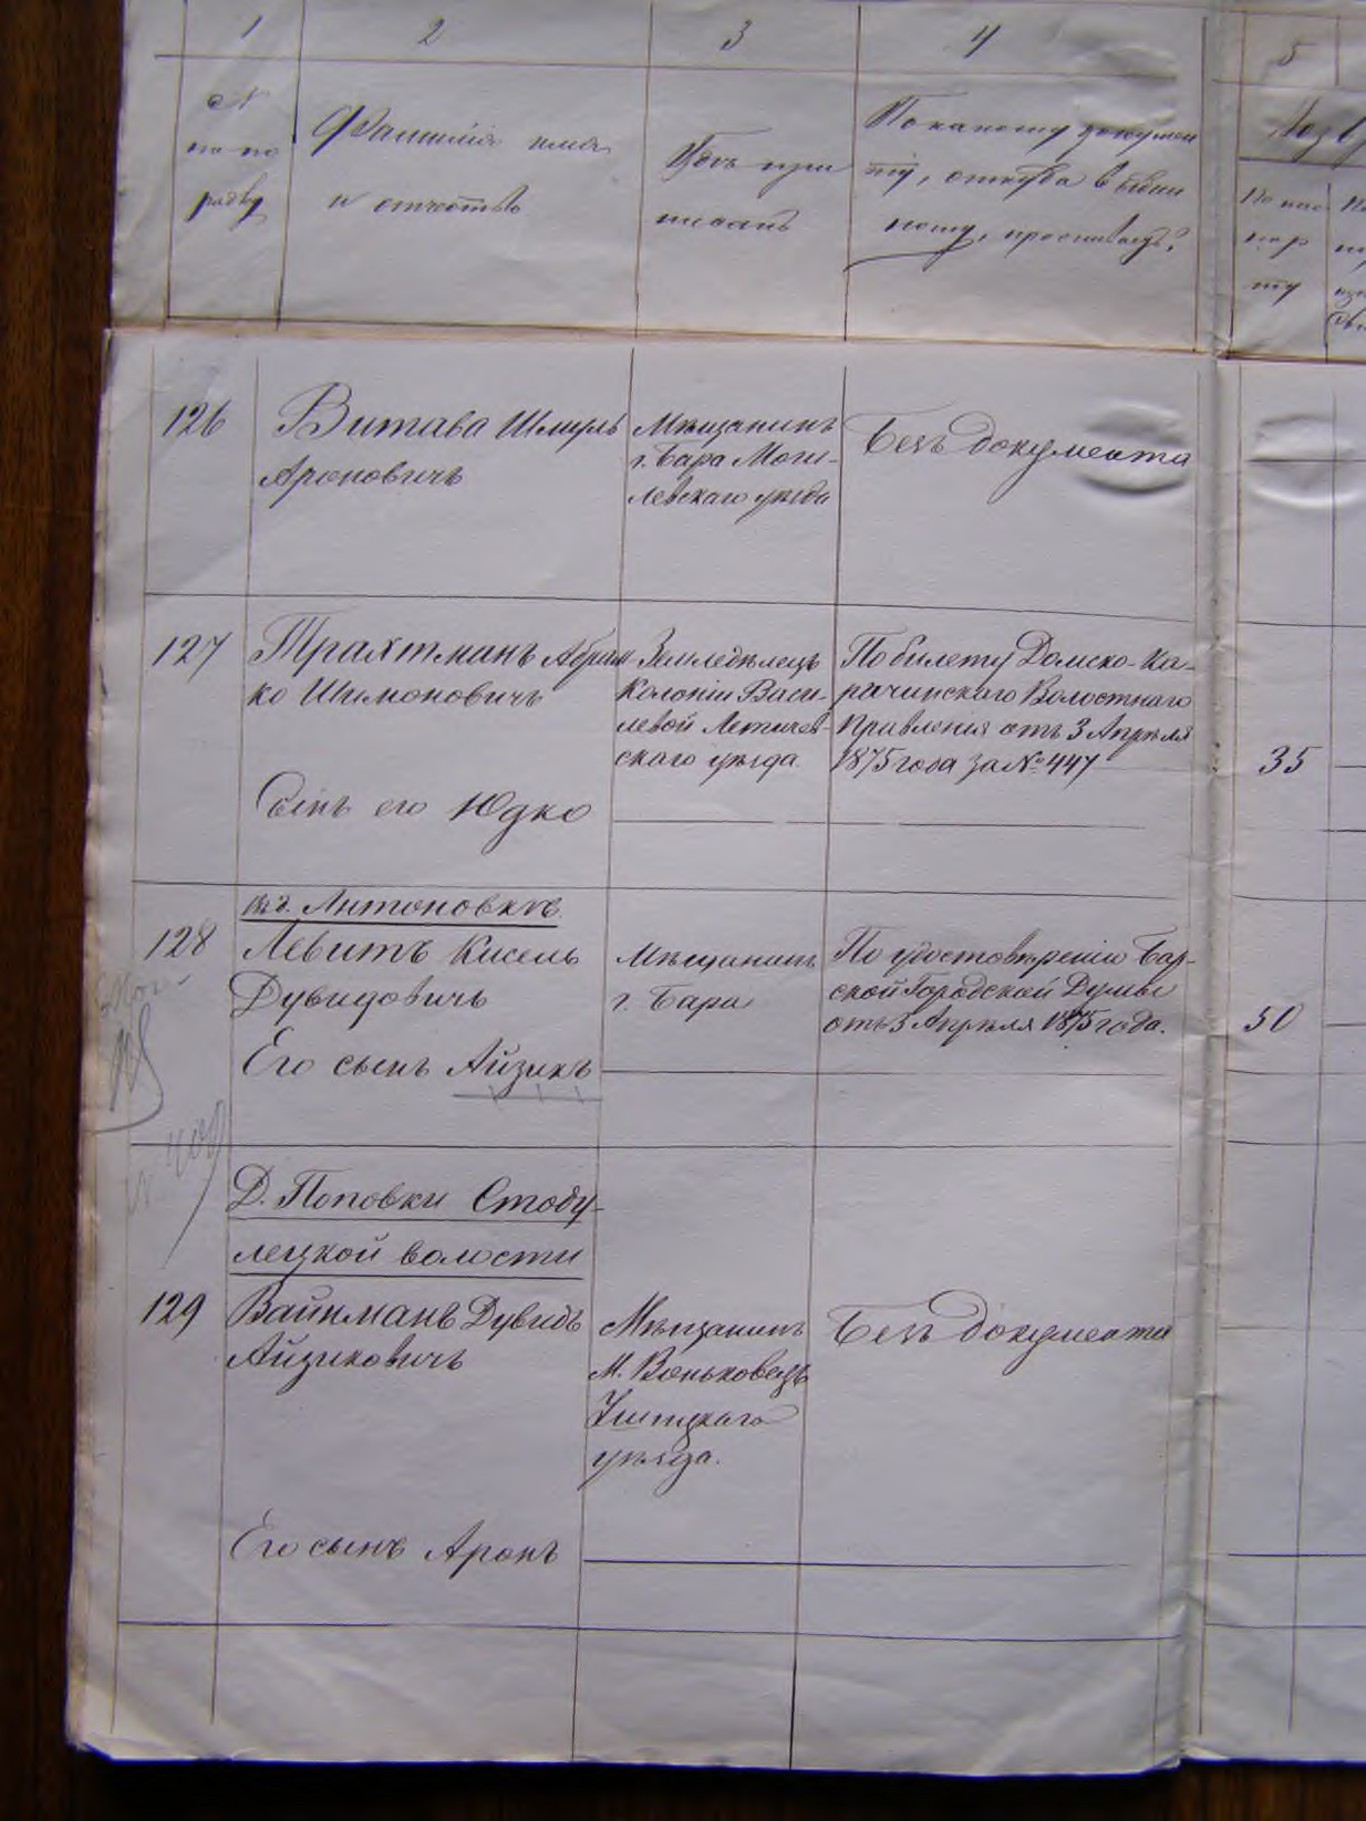 1 2 3 4 5
№
по по
рядку
Фамилія имя
и отчество
Гдѣ при
писанъ
По какому докумен
ту, откуда выдан
ному, проживаетъ?
По пас
пор
ту
126 Витава Шмуль
Ароновичъ
Мѣщанинъ
г. Бара Моги-
левскаго уѣзда
Безъ документа
127 Трахтманъ Абрам
ко Шимоновичъ
Земледѣлецъ
Колоніи Васи-
левой Летичев-
скаго уѣзда.
По билету Домско-Ка-
рачинскаго Волостнаго
Правленія отъ 3 Апрѣля
1875 года за № 447
35
Сынъ его Юдко
въ д. Антоновкѣ
128 Левитъ Кисель
Дувидовичъ
Мѣщанинъ
г. Бара
По удостовѣренію Бар-
ской Городской Думы
отъ 3 Апрѣля 1875 года.
50
Его сынъ Айзикъ
Д. Поповки Стоду-
лецкой волости
129 Вайнманъ Дувидъ
Айзиковичъ
Мѣщанинъ
М. Воньковецъ
Ушицкаго
уѣзда.
Безъ документа
Его сынъ Аронъ